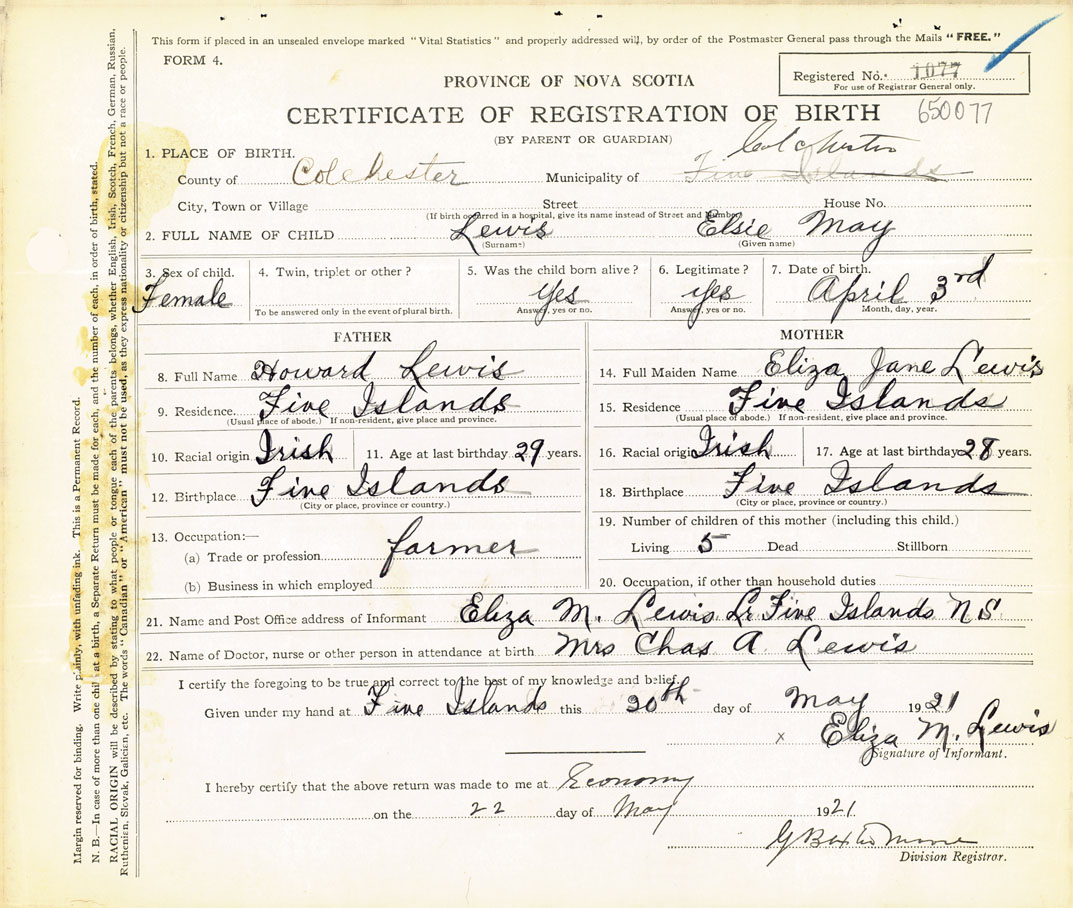 This form if placed in an unsealed envelope marked "Vital Statistics" and properly addressed will, by order of the Postmaster General pass through the Mails "FREE."
FORM 4.
Registered No. 1077
For use of Registrar General only.
PROVINCE OF NOVA SCOTIA
CERTIFICATE OF REGISTRATION OF BIRTH 650077
(BY PARENT OR GUARDIAN)
1. PLACE OF BIRTH. Colchester
County of Colchester Municipality of Five Islands
City, Town or Village Street House No.
(If birth occurred in a hospital, give its name instead of Street and Number)
2. FULL NAME OF CHILD Lewis Elsie May
(Surname) (Given name)
3. Sex of child. 4. Twin, triplet or other? 5. Was the child born alive? 6. Legitimate? 7. Date of birth.
Female Yes yes April 3rd
To be answered only in the event of plural birth. Answer, yes or no. Answer, yes or no. Month, day, year.
FATHER MOTHER
8. Full Name Howard Lewis 14. Full Maiden Name Eliza Jane Lewis
9. Residence. Five Islands 15. Residence Five Islands
(Usual place of abode.) If non-resident, give place and province. (Usual place of abode.) If non-resident, give place and province.
10. Racial origin Irish 11. Age at last birthday 29 years. 16. Racial origin Irish 17. Age at last birthday 28 years.
12. Birthplace Five Islands 18. Birthplace Five Islands
(City or place, province or country.) (City or place, province or country.)
13. Occupation:— 19. Number of children of this mother (including this child.)
(a) Trade or profession farmer Living 5 Dead Stillborn
(b) Business in which employed 20. Occupation, if other than household duties
21. Name and Post Office address of Informant Eliza M. Lewis Lr Five Islands N S.
22. Name of Doctor, nurse or other person in attendance at birth Mrs Chas A. Lewis
I certify the foregoing to be true and correct to the best of my knowledge and belief.
Given under my hand at Five Islands this 20th day of May 1921
x Eliza M. Lewis
Signature of Informant.
I hereby certify that the above return was made to me at Economy
on the 22 day of May 1921.
G
Division Registrar.
Margin reserved for binding. Write plainly, with unfading ink. This is a Permanent Record.
N. B.—In case of more than one child at a birth, a Separate Return must be made for each, and the number of each, in order of birth, stated.
RACIAL ORIGIN will be described by stating to what people or tongue each of the parents belongs, whether English, Irish, Scotch, French, German, Russian,
Ruthenian, Slovak, Galician, etc. The words "Canadian" or "American" must not be used, as they express nationality or citizenship but not a race or people.